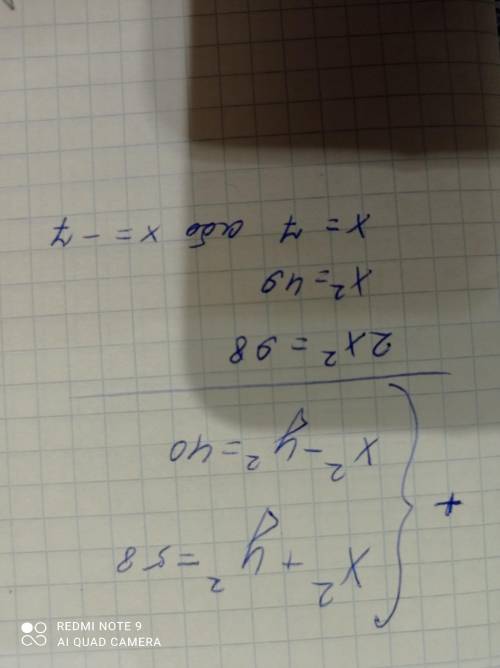 x² + y² = 58
+
x² - y² = 40
2x² = 98
x² = 49
x = 7 або x = -7
REDMI NOTE 9
AI QUAD CAMERA